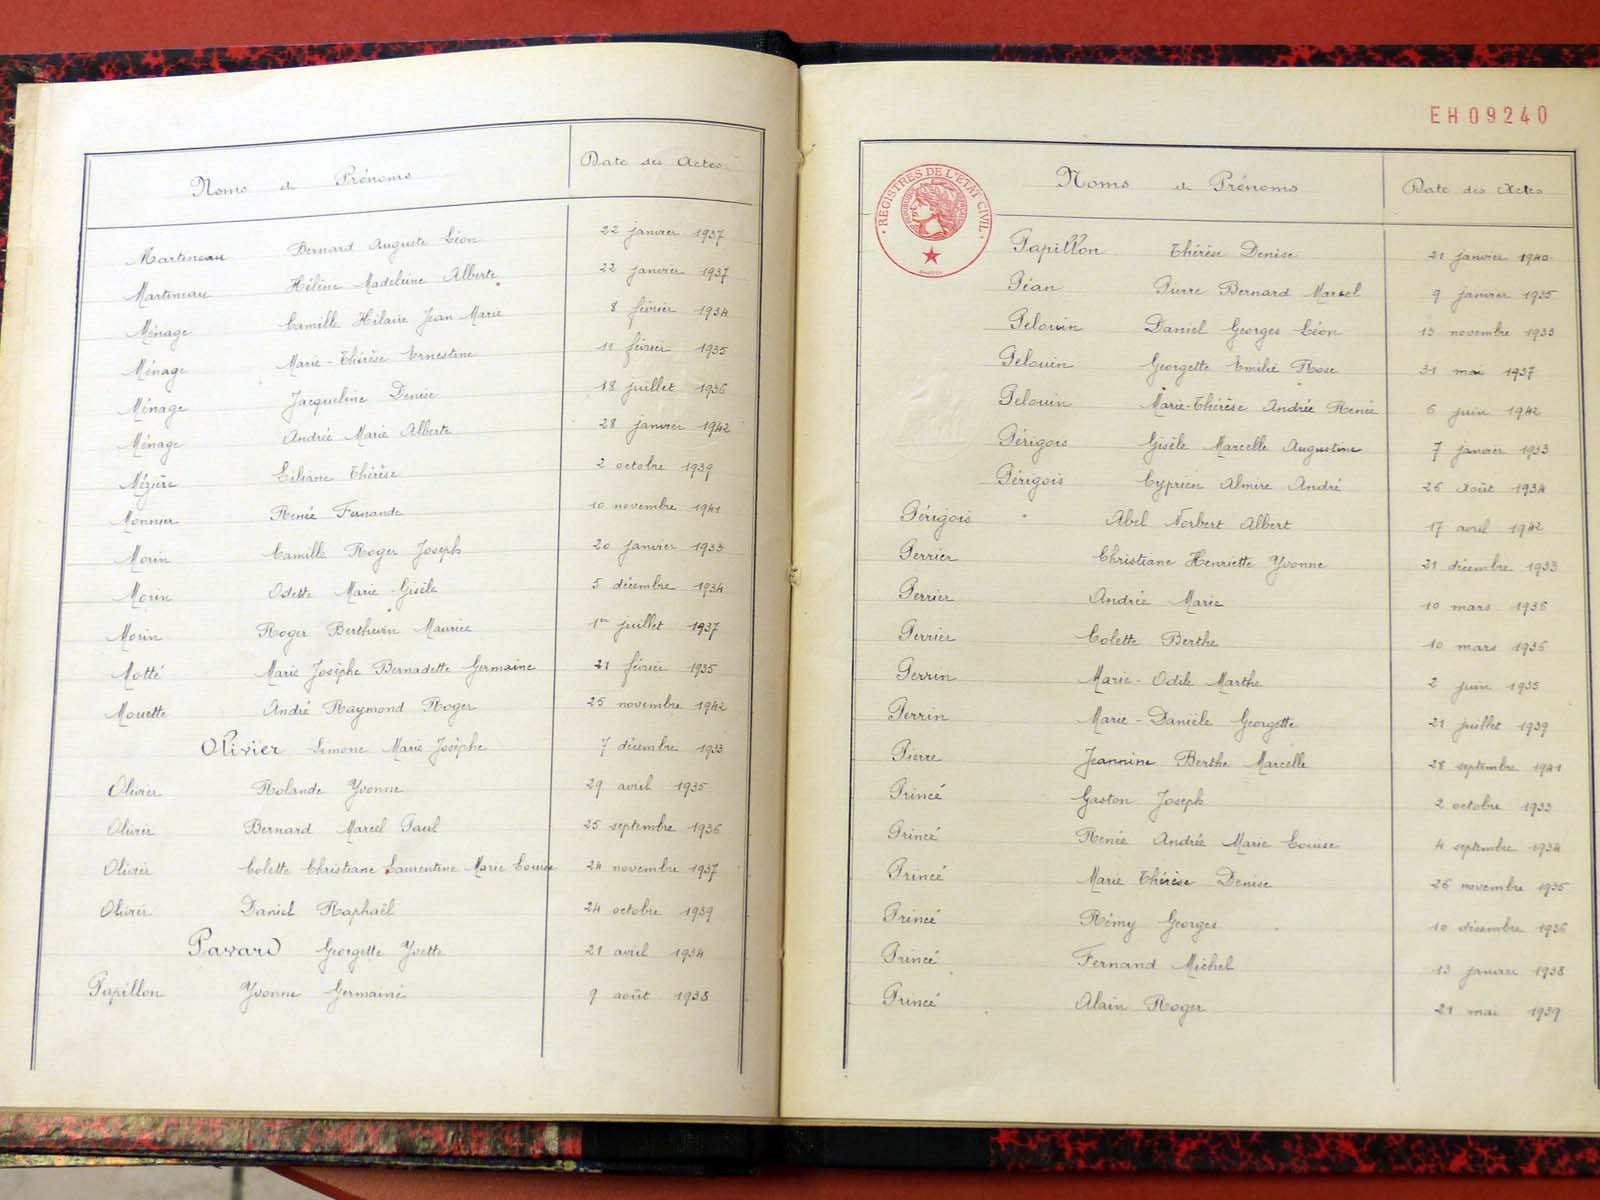 Noms et Prénoms Date des Actes
Martineau Bernard Auguste Léon 22 janvier 1937
Martineau Hélène Madeleine Alberte 22 janvier 1937
Ménage Camille Hilaire Jean-Marie 8 février 1934
Ménage Marie-Thérèse Ernestine 11 février 1935
Ménage Jacqueline Denise 18 juillet 1936
Ménage Andrée Marie Alberte 28 janvier 1942
Mézière Liliane Thérèse 2 octobre 1939
Monnier Renée Fernande 10 novembre 1941
Morin Camille Roger Joseph 20 janvier 1933
Morin Odette Marie Gisèle 5 décembre 1934
Morin Roger Berthevin Maurice 1er juillet 1937
Motté Marie Josèphe Bernadette Germaine 21 février 1935
Mouette André Raymond Roger 25 novembre 1942
Olivier Simone Marie Josèphe 7 décembre 1933
Olivier Rolande Yvonne 29 avril 1935
Olivier Bernard Marcel Paul 25 septembre 1936
Olivier Colette Christiane Laurentine Marie Louise 24 novembre 1937
Olivier Daniel Raphaël 24 octobre 1939
Pavard Georgette Yvette 21 avril 1934
Papillon Yvonne Germaine 9 août 1938
EH09240
REGISTRES DE L'ETAT CIVIL
Noms et Prénoms Date des Actes
Papillon Thérèse Denise 21 janvier 1940
Péan Pierre Bernard Marcel 9 janvier 1935
Pelouin Daniel Georges Léon 13 novembre 1933
Pelouin Georgette Emilie Rose 31 mai 1937
Pelouin Marie-Thérèse Andrée Renée 6 juin 1942
Périgois Gisèle Marcelle Augustine 7 janvier 1933
Périgois Cyprien Almire André 26 août 1934
Périgois Abel Norbert Albert 17 avril 1942
Perrier Christiane Henriette Yvonne 21 décembre 1933
Perrier Andrée Marie 10 mars 1936
Perrier Colette Berthe 10 mars 1936
Perrin Marie-Odile Marthe 2 juin 1935
Perrin Marie-Danièle Georgette 21 juillet 1939
Pierre Jeannine Berthe Marcelle 28 septembre 1941
Princé Gaston Joseph 2 octobre 1933
Princé Renée Andrée Marie Louise 4 septembre 1934
Princé Marie Thérèse Denise 26 novembre 1935
Princé Rémy Georges 10 décembre 1936
Princé Fernand Michel 13 janvier 1938
Princé Alain Roger 21 mai 1939